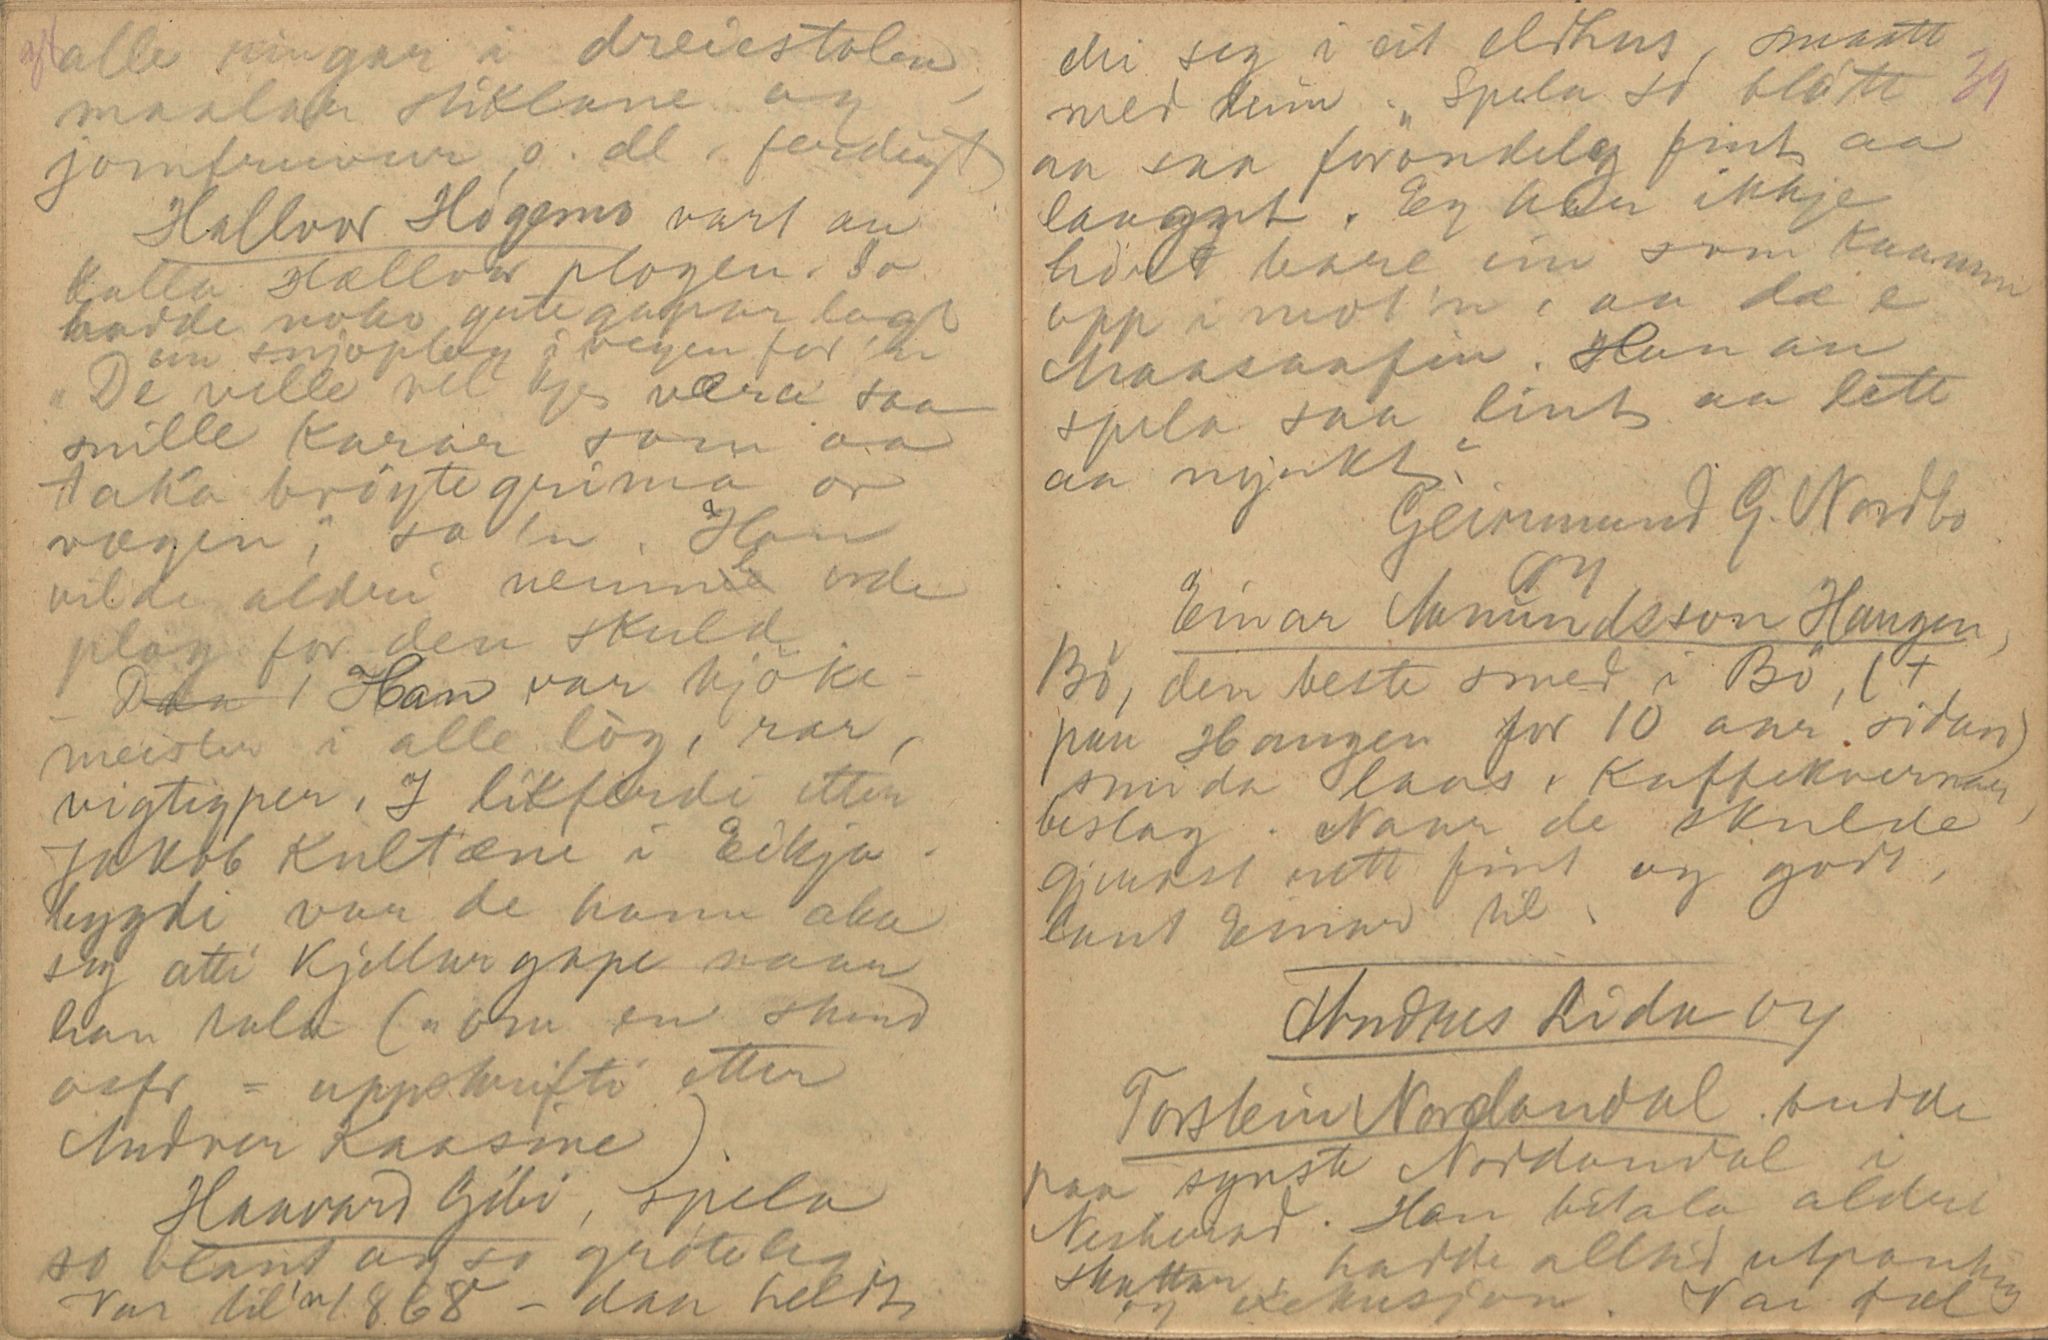 af alle ringar i dreiestolen,
maalar stiklane og
jomfruvur, o. dl. ferdigt
Hallvor Högemo vart au
kalla Hallvor plogen. So
hadde noko gutegapar lagt
ein snjoplog i vegen for 'n
"De ville vel kje være saa
snille karar som aa
taka bröytegrima or
vægen", sa 'n. Han
vilde aldri nemne orde
plog for den skuld.
- Han var kjöke-
meister i alle lög, rar,
vigtigper. I likferdi etter
Jakob Kultæne i Eikja-
bygdi var de hann aka
seg atti kjellargape naar
han tala ("om en stund
osfr = uppskrifti etter
Andres Kaasine).
Haavard Gibö, spela
so blant og so gröteleg.
Var til 'n 1868 - dan heldt
39
dei seg i eit eldhus, maatte
med heim. "Spela so blött
aa saa foröndeleg fint aa
laagnt. Eg har ikkje
hört bare ein som kaamm
opp i mot 'n, aa dæ e
Maasaafin. Han au
spela saa lint aa lett
aa mjukt."
Geirmund G. Nordbö
og
Einar Amundsson Haugen,
Bö, den beste smed i Bö, (+
paa Haugen for 10 aar sidan)
smida laas, kaffekvernar,
beslag. Naar de skulde
gjerast nett fint og godt,
laut Einar til.
Andres Lida og
Torstein Nordandal. budde
paa synste Nordandal i
Nesherad. Han betala aldri
skattar, hadde alltid utpanting
og eksekusjon. Var fæl